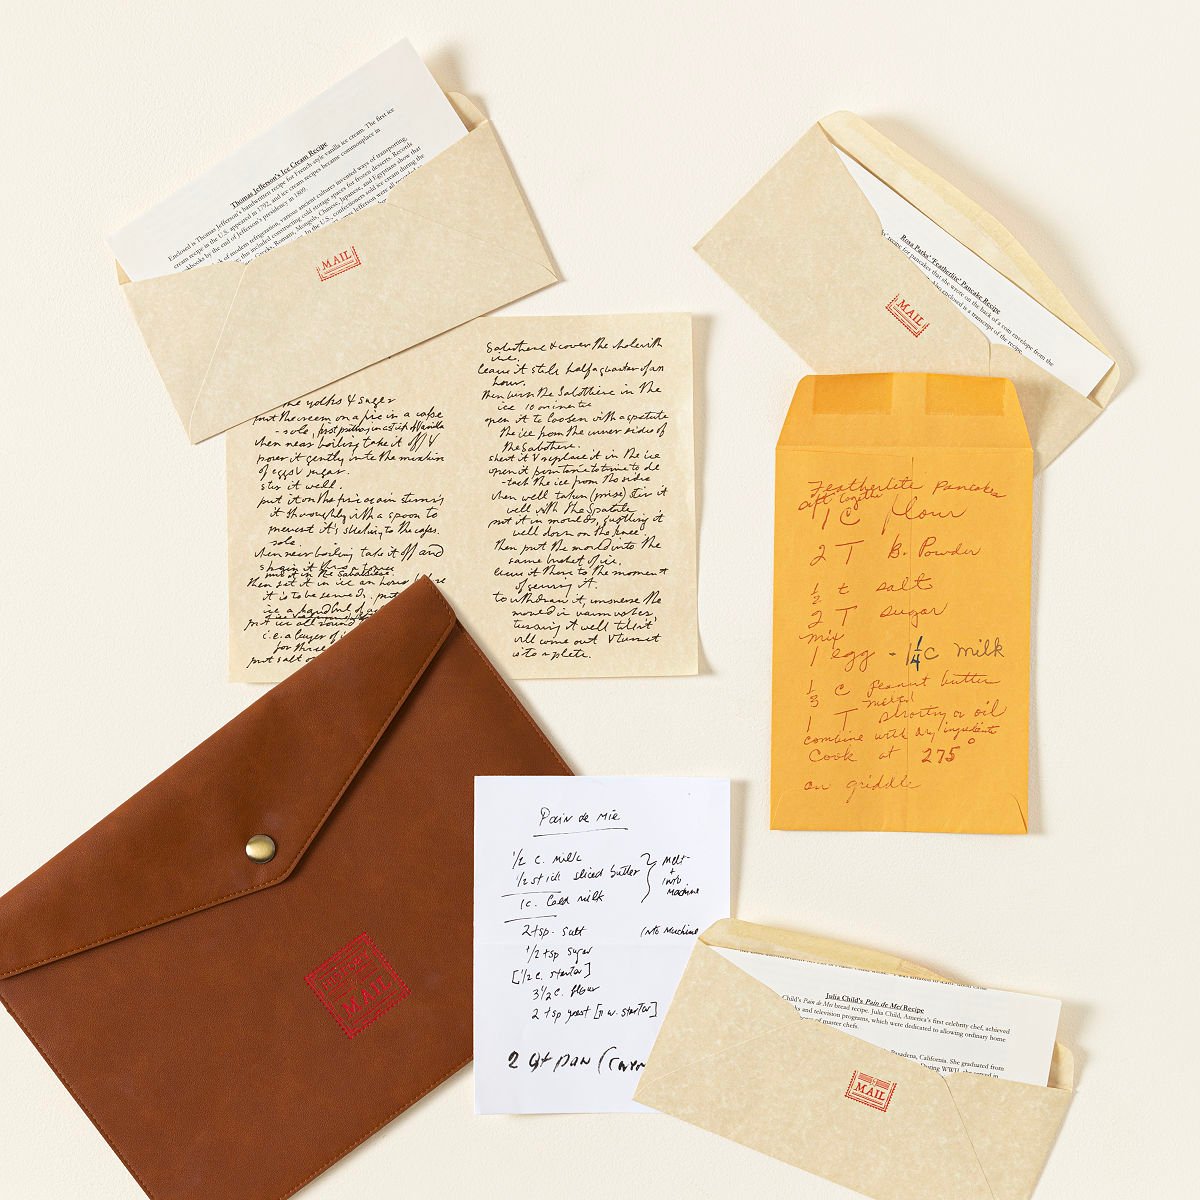 Thomas Jefferson's Ice Cream Recipe
Enclosed is Thomas Jefferson's handwritten recipe for French style vanilla ice cream. The first ice
cream recipe in the U.S. appeared in 1792, and ice cream recipes became commonplace in
by the end of Jefferson's presidency in 1809.
of modern refrigeration, various ancient cultures invented ways of transporting,
this included constructing cold storage spaces for frozen desserts. Records
Greeks, Romans, Mongols, Chinese, Japanese, and Egyptians show that
In the U.S., confectioners sold ice cream during the
Jefferson were all
MAIL
the yolks & sugar
put the cream on a fire in a
when near boiling take it off &
pour it gently into the mixture
of eggs & sugar.
stir it well.
put it on the fire again stirring
it thoroughly with a spoon to
prevent it's sticking to the
sole.
when near boiling take it off and
strain it
put it in the Sabottiere
then set it in ice an hour before
it is to be served. put
ice a handful of
put ice all round
i.e. a layer of
for three
put salt on
Sabottiere & cover the whole with
ice.
leave it still half a quarter of an
hour.
then turn the Sabottiere in the
ice 10 minutes
open it to loosen with a spatula
the ice from the inner sides of
the Sabotiere.
shut it & replace it in the ice
open it from time to time to de
-tach the ice from the sides
when well taken (prise) stir it
well with the Spatula.
put it in moulds, justling it
well down on the knee.
then put the mould into the
same bucket of ice.
leave it there to the moment
of serving it.
to withdraw it, immerse the
mould in warm water,
turning it well till it
will come out & turn it
into a plate.
Rosa Parks' 'Featherlite' Pancake Recipe
recipe for pancakes that she wrote on the back of a coin envelope from the
Also enclosed is a transcript of the recipe.
MAIL
Featherlite Pancakes
sift together
1 C flour
2 T B. Powder
1/2 t salt
2 T sugar
mix
1 egg - 1 1/4 C milk
1/3 C peanut butter
melted
1 T shortng or oil
combine with dry ingredients
Cook at 275°
on griddle
MAIL
Pain de Mie
1/2 c. milk
1/2 stick sliced butter
melt
+
into
machine
1c. cold milk
2 tsp. salt
(into machine
1/2 tsp sugar
[1/2 c. starter]
3 1/2 c. flour
2 tsp yeast [n w. starter]
2 qt pan
Julia Child's Pain de Mei Recipe
Child's Pain de Mei bread recipe. Julia Child, America's first celebrity chef, achieved
and television programs, which were dedicated to allowing ordinary home
of master chefs.
Pasadena, California. She graduated from
During WWII, she served in
MAIL